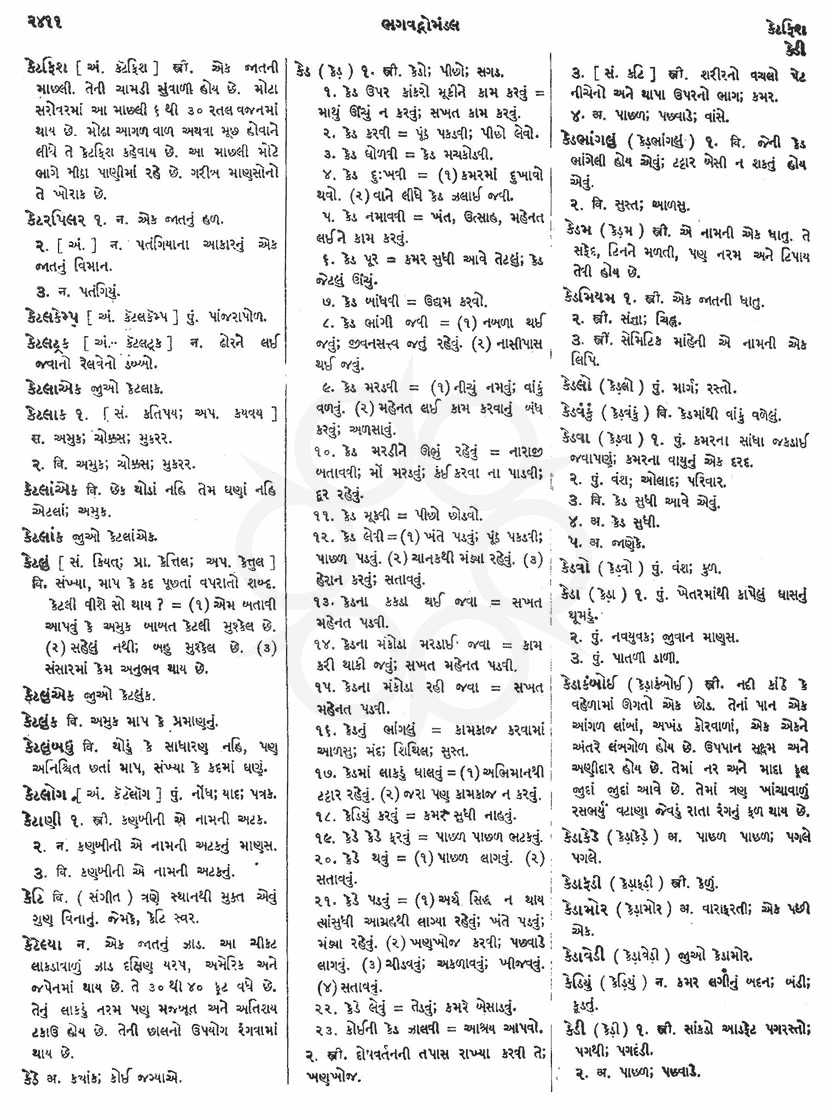 ૨૪૧૧
ભગવદ્ગોમંડલ
કેટફિશ
કેડી
કેટફિશ [ અં. કૅટફિશ ] સ્ત્રી. એક જાતની
માછલી. તેની ચામડી સુંવાળી હોય છે. મોટા
સરોવરમાં આ માછલી ૬ થી ૩૦ રતલ વજનમાં
થાય છે. મોઢા આગળ વાળ અથવા મૂછ હોવાને
લીધે તે કેટફિશ કહેવાય છે. આ માછલી મોટે
ભાગે મીઠા પાણીમાં રહે છે. ગરીબ માણસોનો
તે ખોરાક છે.
કેટરપિલર ૧. ન. એક જાતનું હળ.
૨. [ અં. ] ન. પતંગિયાના આકારનું એક
જાતનું વિમાન.
૩. ન. પતંગિયું.
કેટલકેમ્પ [ અં. કૅટલકૅમ્પ ] પું. પાંજરાપોળ.
કેટલટ્રક [ અં. કૅટલટ્રક ] ન. ઢોરને લઈ
જવાનો રેલવેનો ડબ્બો.
કેટલાએક જુઓ કેટલાક.
કેટલાક ૧. [ સં. કતિપય; અપ. કયવય ]
સ. અમુક; ચોક્કસ; મુકરર.
૨. વિ. અમુક; ચોક્કસ; મુકરર.
કેટલાંએક વિ. છેક થોડાં નહિ તેમ ઘણાં નહિ
એટલાં; અમુક.
કેટલાંક જુઓ કેટલાંએક.
કેટલું [ સં. કિયત્; પ્રા. કેત્તિલ; અપ. કેત્તુલ ]
વિ. સંખ્યા, માપ કે કદ પૂછતાં વપરાતો શબ્દ.
કેટલી વીશે સો થાય ? = (૧) એમ બતાવી
આપવું કે અમુક બાબત કેટલી મુશ્કેલ છે.
(૨) સહેલું નથી; બહુ મુશ્કેલ છે. (૩)
સંસારમાં કેમ અનુભવ થાય છે.
કેટલુંએક જુઓ કેટલુંક.
કેટલુંક વિ. અમુક માપ કે પ્રમાણનું.
કેટલુંબધું વિ. થોડું કે સાધારણ નહિ, પણ
અનિશ્ચિત છતાં માપ, સંખ્યા કે કદમાં ઘણું.
કેટલોગ [ અં. કૅટૅલૉગ ] પું. નોંધ; યાદ; પત્રક.
કેટાણી ૧. સ્ત્રી. કણબીની એ નામની અટક.
૨. ન. કણબીની એ નામની અટકનું માણસ.
૩. વિ. કણબીની એ નામની અટકનું.
કેટિ વિ. ( સંગીત ) ત્રણે સ્થાનથી મુક્ત એવું
ગુણ વિનાનું. જેમકે, કેટિ સ્વર.
કેટેલ્યા ન. એક જાતનું ઝાડ. આ ચીકટ
લાકડાવાળું ઝાડ દક્ષિણ યરપ, અમેરિક અને
જપેનમાં થાય છે. તે ૩૦ થી ૪૦ ફૂટ વધે છે.
તેનું લાકડું નરમ પણ મજબૂત અને અતિશય
ટકાઉ હોય છે. તેની છાલનો ઉપયોગ રંગવામાં
થાય છે.
કેઠે અ. ક્યાંક; કોઈ જગ્યાએ.
કેડ ( કેડ઼ ) ૧. સ્ત્રી. કેડો; પીછો; સગડ.
૧. કેડ ઉપર કાંકરો મૂકીને કામ કરવું =
માથું ઊંચું ન કરવું; સખત કામ કરવું.
૨. કેડ કરવી = પૂંઠ પકડવી; પીછો લેવો.
૩. કેડ ધોળવી = કેડ મચકોડવી.
૪. કેડ દુઃખવી = (૧) કમરમાં દુખાવો
થવો. (૨) વાને લીધે કેડ ઝલાઈ જવી.
૫. કેડ નમાવવી = ખંત, ઉત્સાહ, મહેનત
લઈને કામ કરવું.
૬. કેડ પૂર = કમર સુધી આવે તેટલું; કેડ
જેટલું ઊંચું.
૭. કેડ બાંધવી = ઉદ્યમ કરવો.
૮. કેડ ભાંગી જવી = (૧) નબળા થઈ
જવું; જીવનસત્ત્વ જતું રહેવું. (૨) નાસીપાસ
થઈ જવું.
૯. કેડ મરડવી = (૧) નીચું નમવું; વાંકું
વળવું. (૨) મહેનત લઈ કામ કરવાનું બંધ
કરવું; અળસાવું.
૧૦. કેડ મરડીને ઊભું રહેવું = નારાજી
બતાવવી; મોં મરડવું; કંઈ કરવા ના પાડવી;
દૂર રહેવું.
૧૧. કેડ મૂકવી = પીછો છોડવો.
૧૨. કેડ લેવી = (૧) ખંતે પડવું; પૂંઠ પકડવી;
પાછળ પડવું. (૨) ચાનકથી મંડ્યા રહેવું. (૩)
હેરાન કરવું; સતાવવું.
૧૩. કેડના કકડા થઈ જવા = સખત
મહેનત પડવી.
૧૪. કેડના મંકોડા મરડાઈ જવા = કામ
કરી થાકી જવું; સખત મહેનત પડવી.
૧૫. કેડના મંકોડા રહી જવા = સખત
મહેનત પડવી.
૧૬. કેડનું ભાંગલું = કામકાજ કરવામાં
આળસુ; મંદ; શિથિલ; સુસ્ત.
૧૭. કેડમાં લાકડું ઘાલવું = (૧) અભિમાનથી
ટટ્ટાર રહેવું. (૨) જરા પણ કામકાજ ન કરવું.
૧૮. કેડિયું કરવું = કમર સુધી નાહવું.
૧૯. કેડે કેડે ફરવું = પાછળ પાછળ ભટકવું.
૨૦. કેડે થવું = (૧) પાછળ લાગવું. (૨)
સતાવવું.
૨૧. કેડે પડવું = (૧) અર્થ સિદ્ધ ન થાય
ત્યાંસુધી આગ્રહથી લાગ્યા રહેવું; ખંતે પડવું;
મંડ્યા રહેવું. (૨) ખણખોજ કરવી; પછવાડે
લાગવું. (૩) ચીડવવું; અકળાવવું; ખીજવવું.
(૪) સતાવવું.
૨૨. કેડે લેવું = તેડવું; કમરે બેસાડવું.
૨૩. કોઈની કેડ ઝાલવી = આશ્રય આપવો.
૨. સ્ત્રી. દોષવર્તનની તપાસ રાખ્યા કરવી તે;
ખણખોજ.
૩. [ સં. કટિ ] સ્ત્રી. શરીરનો વચલો પેટ
નીચેનો અને થાપા ઉપરનો ભાગ; કમર.
૪. અ. પાછળ; પછવાડે; વાંસે.
કેડભાંગલું ( કેડ઼ભાંગલું ) ૧. વિ. જેની કેડ
ભાંગેલી હોય એવું; ટટ્ટાર બેસી ન શકતું હોય
એવું.
૨. વિ. સુસ્ત; આળસુ.
કેડમ ( કેડ઼મ ) સ્ત્રી. એ નામની એક ધાતુ. તે
સફેદ, ટિનને મળતી, પણ નરમ અને ટિપાય
તેવી હોય છે.
કેડમિયમ ૧. સ્ત્રી. એક જાતની ધાતુ.
૨. સ્ત્રી. સંજ્ઞા; ચિહ્ન.
૩. સ્ત્રી. સેમિટિક માંહેની એ નામની એક
લિપિ.
કેડલો ( કેડ઼લો ) પું. માર્ગ; રસ્તો.
કેડવંકું ( કેડ઼વંકું ) વિ. કેડમાંથી વાંકું વળેલું.
કેડવા ( કેડ઼વા ) ૧. પું. કમરના સાંધા જકડાઈ
જવાપણું; કમરના વાયુનું એક દરદ.
૨. પું. વંશ; ઓલાદ; પરિવાર.
૩. વિ. કેડ સુધી આવે એવું.
૪. અ. કેડ સુધી.
૫. અ. જાણેકે.
કેડવો ( કેડ઼વો ) પું. વંશ; કુળ.
કેડા ( કેડ઼ા ) ૧. પું. ખેતરમાંથી કાપેલું ઘાસનું
થૂમડું.
૨. પું. નવયુવક; જુવાન માણસ.
૩. પું. પાતળી ડાળી.
કેડાકંબોઈ ( કેડ઼ાકંબોઈ ) સ્ત્રી. નદી કાંઠે કે
વહેળામાં ઊગતો એક છોડ. તેનાં પાન એક
આંગળ લાંબાં, અખંડ કોરવાળાં, એક એકને
અંતરે લંબગોળ હોય છે. ઉપપાન સૂક્ષ્મ અને
અણીદાર હોય છે. તેમાં નર અને માદા ફૂલ
જુદાં જુદાં આવે છે. તેમાં ત્રણ ખાંચાવાળું
રસભર્યું વટાણા જેવડું રાતા રંગનું ફળ થાય છે.
કેડાકેડે ( કેડ઼ાકેડ઼ે ) અ. પાછળ પાછળ; પગલે
પગલે.
કેડાફદી ( કેડ઼ાફદી ) સ્ત્રી. કેળું.
કેડામોર ( કેડ઼ામોર ) અ. વારાફરતી; એક પછી
એક.
કેડાવેડી ( કેડ઼ાવેડ઼ી ) જુઓ કેડામોર.
કેડિયું ( કેડ઼િયું ) ન. કમર લગીનું બદન; બંડી;
કૂડતું.
કેડી ( કેડ઼ી ) ૧. સ્ત્રી. સાંકડો આડફેટ પગરસ્તો;
પગથી; પગદંડી.
૨. અ. પાછળ; પછવાડે.